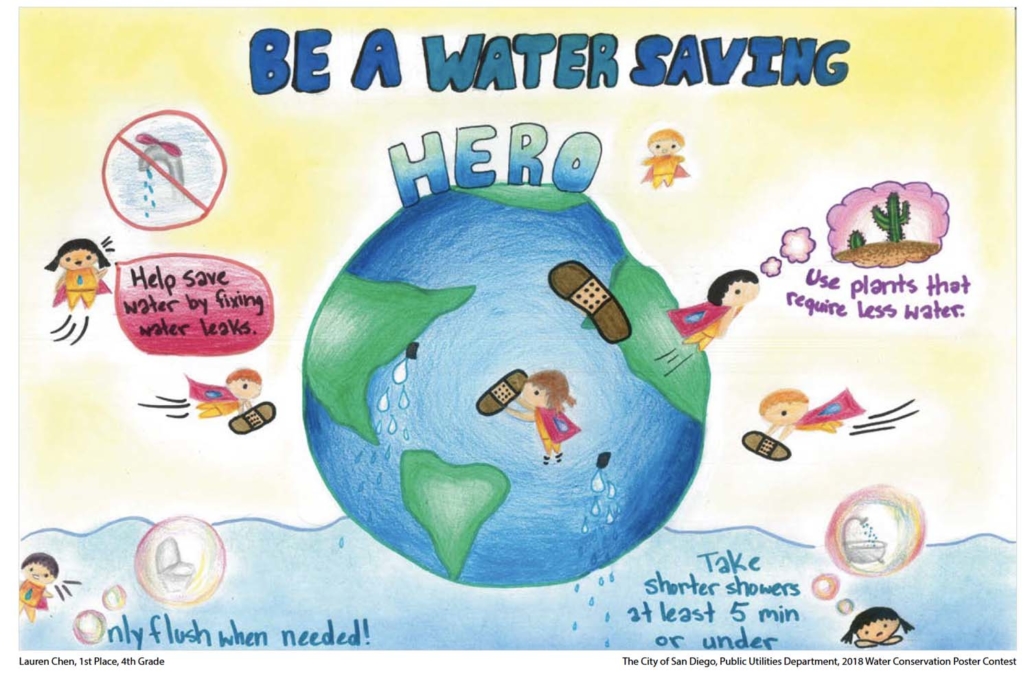 BE A WATER SAVING
HERO
Help save
water by fixing
water leaks.
Use plants that
require less water.
Only flush when needed!
Take
shorter showers
at least 5 min
or under
Lauren Chen, 1st Place, 4th Grade
The City of San Diego, Public Utilities Department, 2018 Water Conservation Poster Contest